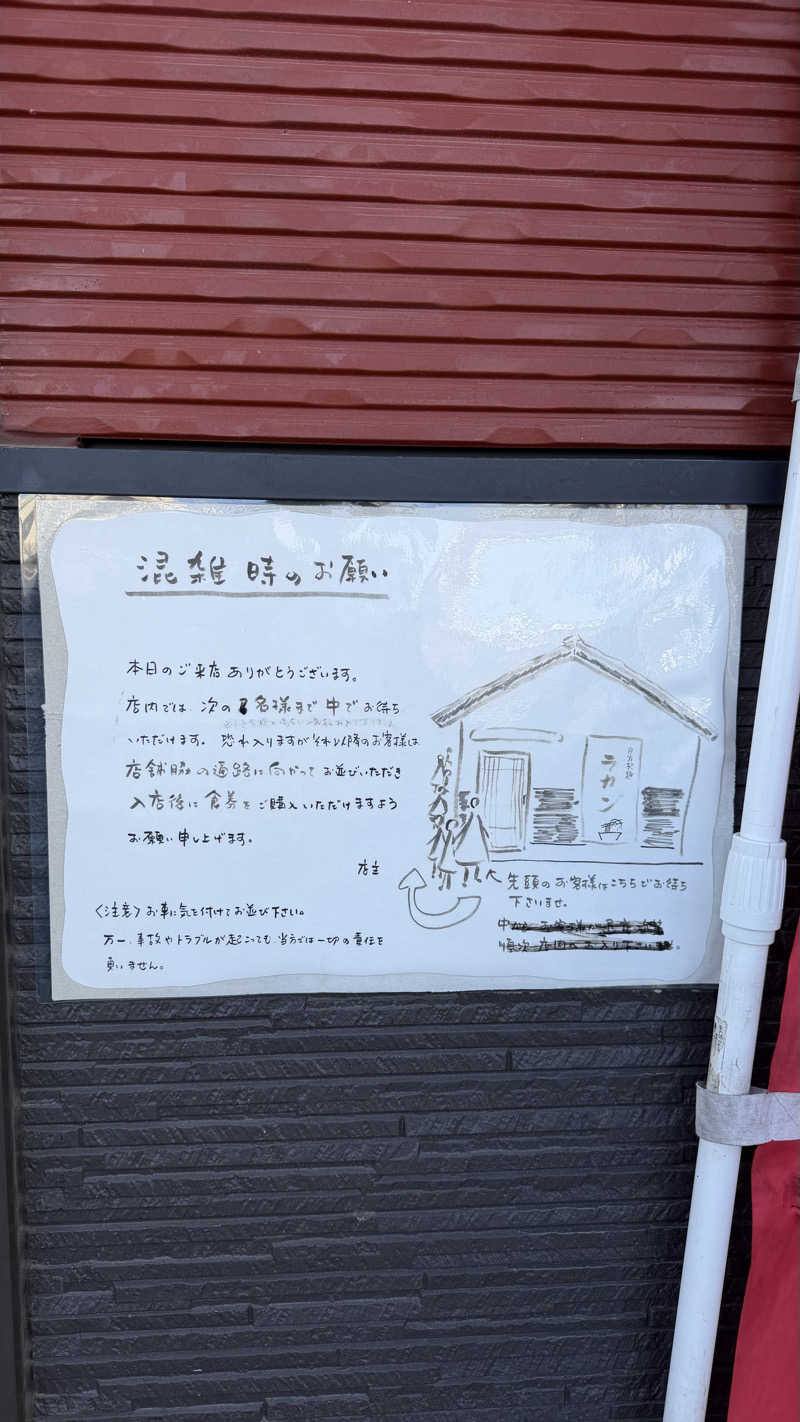 混雑時のお願い
本日のご来店ありがとうございます。
店内では、次の7名様まで中でお待ち
いただけます。恐れ入りますがそれ以降のお客様は
店舗脇の通路に向かってお並びいただき
入店後に食券をご購入いただけますよう
お願い申し上げます。
店主
〈注意〉お車に気を付けてお並び下さい。
万一、事故やトラブルが起こっても、当方では一切の責任を
負いません。
ラカン
先頭のお客様はこちらでお待ち
下さいませ。